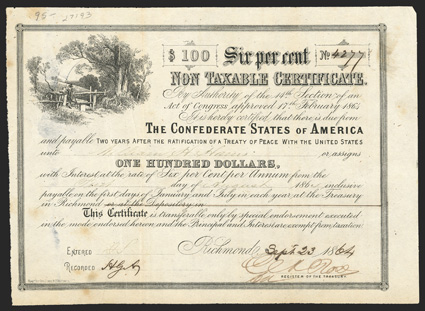 95- 27193
$ 100 Six per cent No 4277
NON TAXABLE CERTIFICATE.
By Authority of the 14th Section of an
Act of Congress approved 17th February 1864
It is hereby certified that there is due from
THE CONFEDERATE STATES OF AMERICA
and payable TWO YEARS AFTER THE RATIFICATION OF A TREATY OF PEACE WITH THE UNITED STATES
unto or assigns
ONE HUNDRED DOLLARS,
with Interest at the rate of Six per Cent per Annum from the
day of 1864 inclusive
payable on the first days of January and July in each year at the Treasury
in Richmond or at the Depository in
This Certificate is transferable only by special endorsement executed
in the mode endorsed hereon and the Principal and Interest are exempt from taxation.
ENTERED Richmond Sept 23 1864
RECORDED
REGISTER OF THE TREASURY